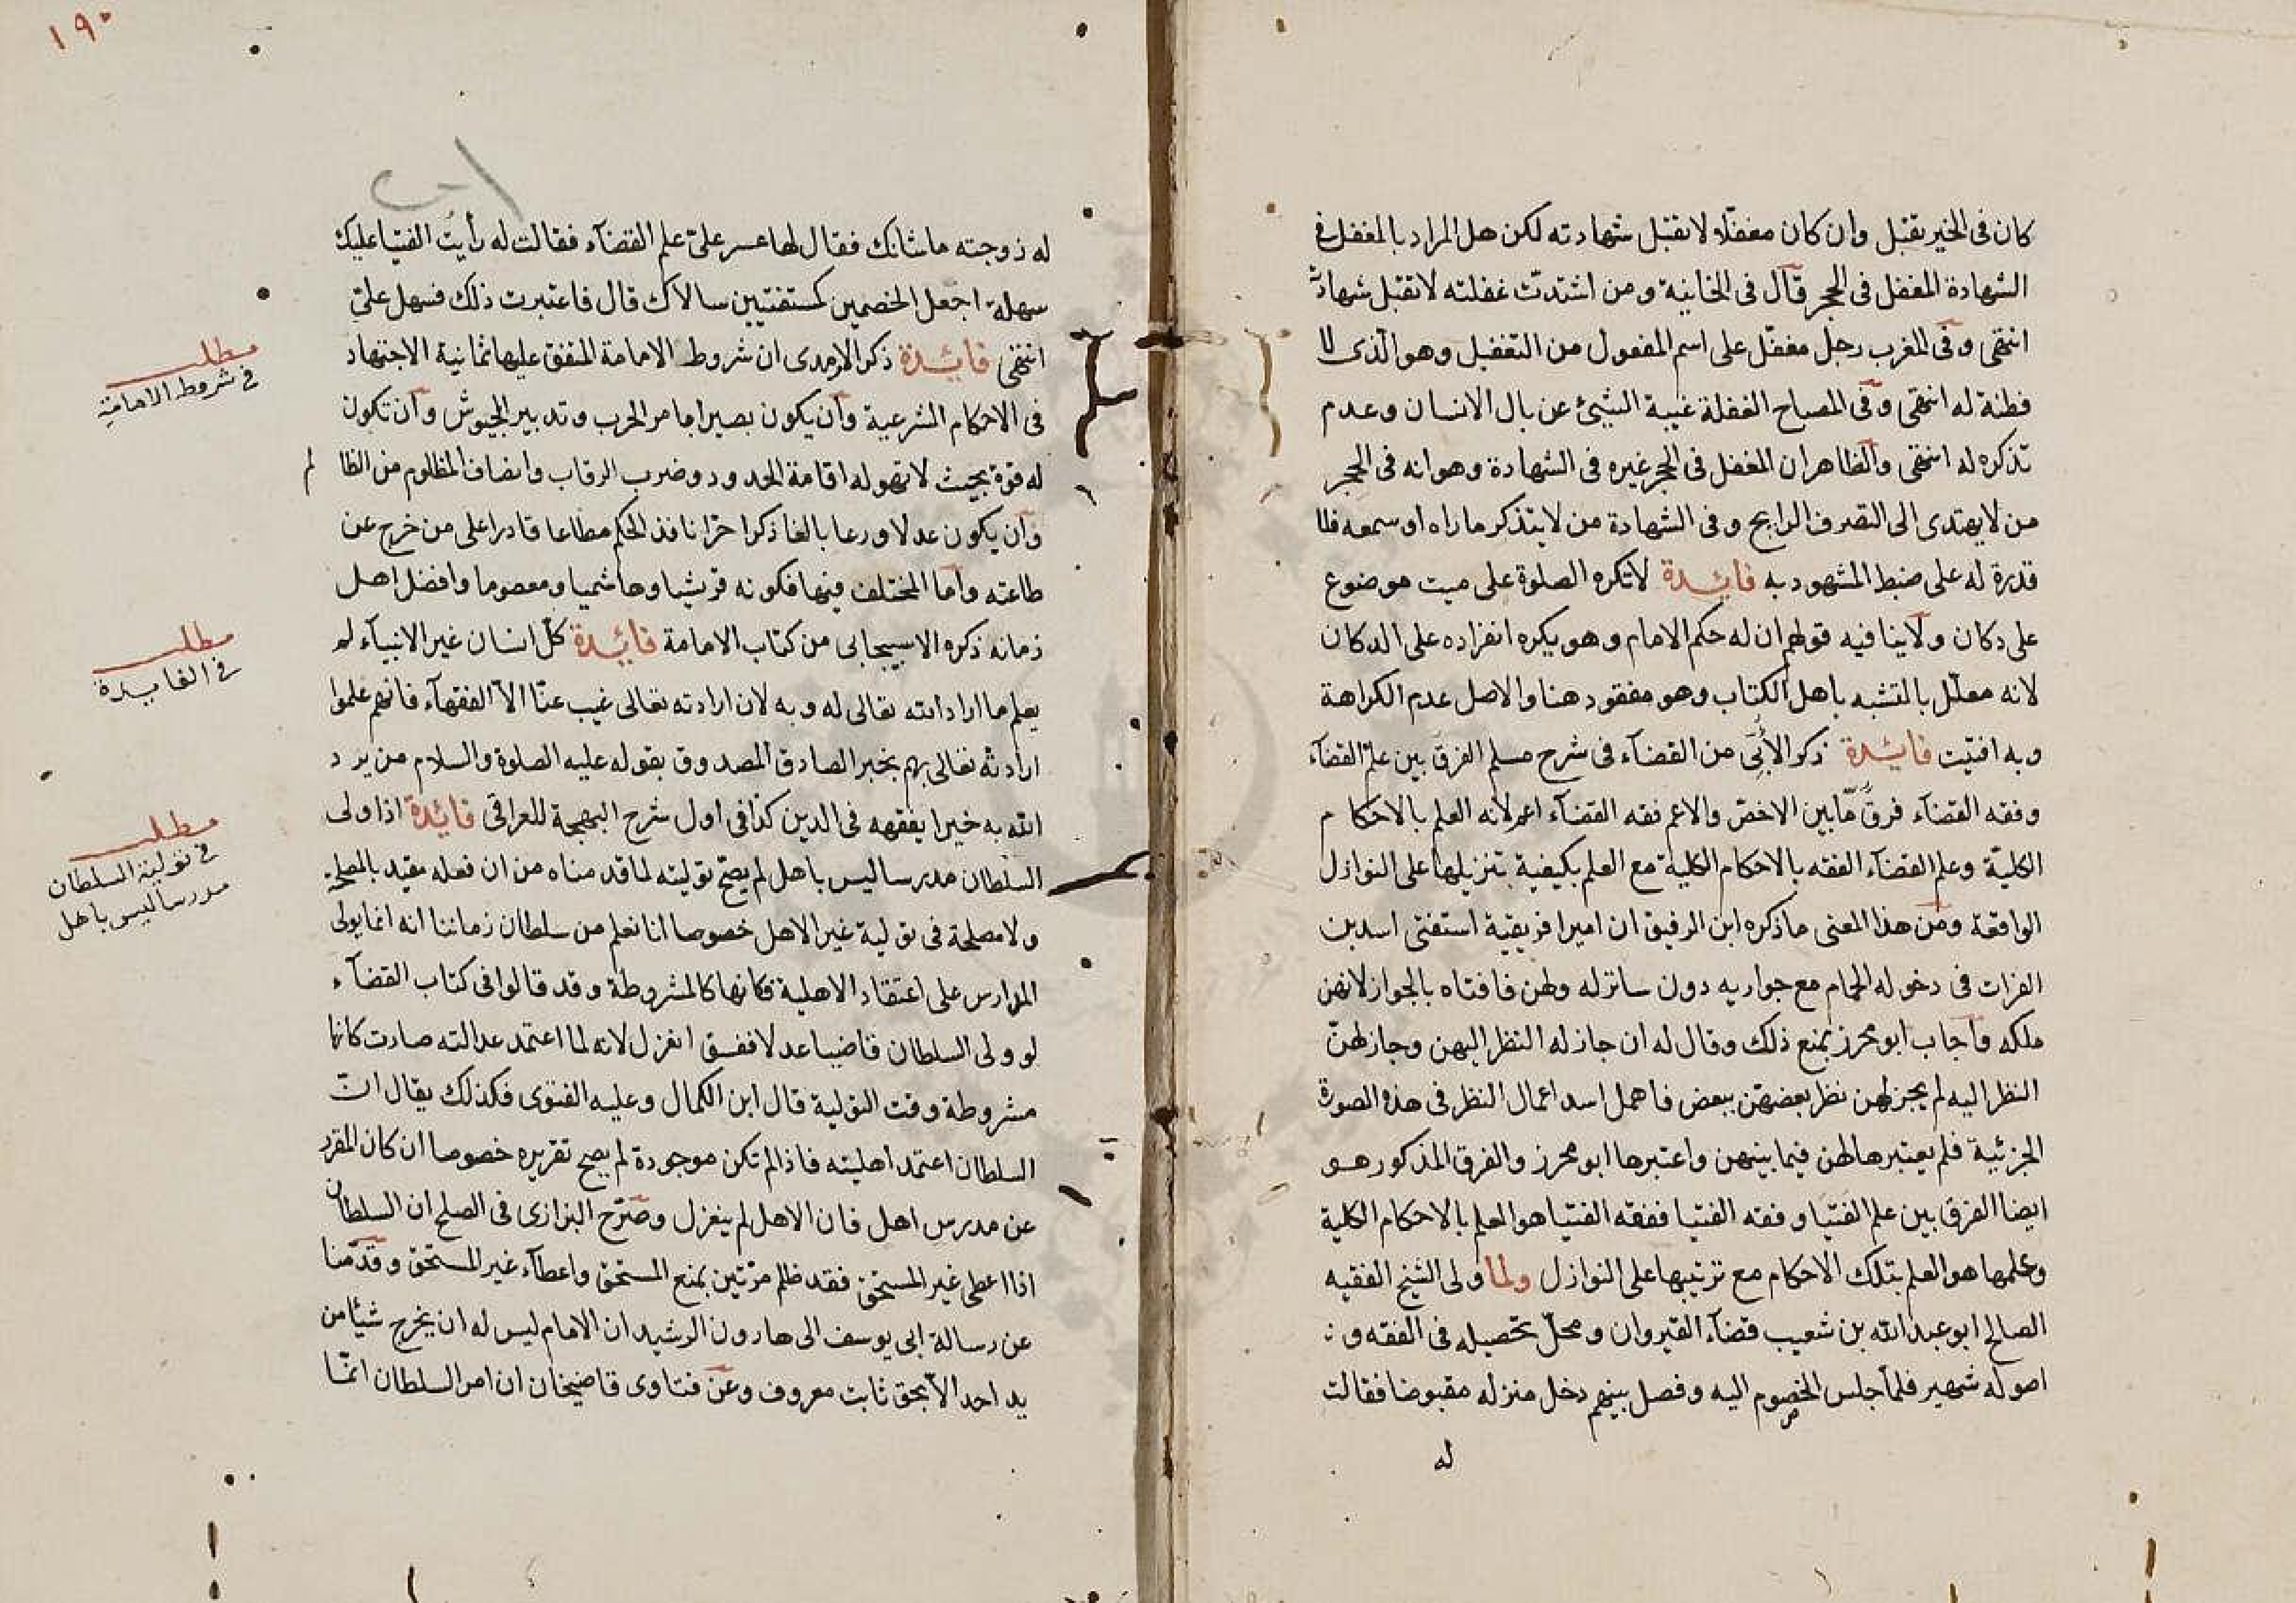 كان فى الخير تقبل وان كان مغفّلا ولا تقبل شهادته لكن هل المراد بالمغفل فى
الشهادة المغفل فى الحجر قال فى الخانية ومن اشتدت غفلته لا تقبل شهادته
انتهى وفى المغرب رجل مغفّل على اسم المفعول من التغفيل وهو الذى لا
فطنة له انتهى وفى المصباح الغفلة غيبة الشيئ عن بال الانسان وعدم
تذكره له انتهى والظاهر ان المغفل فى الحجر غيره فى الشهادة وهو انه فى الحجر
من لا يهتدى الى التصرف الرابح وفى الشهادة من لا يتذكر ما راه او سمعه فلا
قدرة له على ضبط المشهود به فايدة لا تكره الصلوة على ميت موضوع
على دكان ولا ينافيه قولهم ان له حكم الامام وهو يكره انفراده على الدكان
لانه معلّل بالتشبه باهل الكتاب وهو مفقود هنا والاصل عدم الكراهة
وبه افتيت فائدة ذكر الأُبّى من القضآء فى شرح مسلم الفرق بين علم القضآء
وفقه القضآء فرق مّا بين الاخصّ والاعم فقه القضآء اعم لانه العلم بالاحكام
الكليّة وعلم القضآء الفقه بالاحكام الكلية مع العلم بكيفية تنزيلها على النوازل
الواقعة ومن هذا المعنى ما ذكره ابن الرفيق ان امير افريقية استفتى اسد بن
الفرات فى دخوله الحمام مع جواريه دون ساتر له ولهن فافتاه بالجواز لانهن
ملكه واجاب ابو محرز بمنع ذلك وقال له ان جاز له النظر اليهن وجاز لهنّ
النظر اليه لم يجز لهن نظر بعضهن ببعض فاهمل اسد اعمال النظر فى هذه الصورة
الجزئية فلم يعتبرها لهن فيما بينهن واعتبرها ابو محرز والفرق المذكور هو
ايضا الفرق بين علم الفتيا وفقه الفتيا ففقه الفتيا هو العلم بالاحكام الكلية
وعلمها هو العلم بتلك الاحكام مع ترتيبها على النوازل ولما ولى الشيخ الفقيه
الصالح ابو عبد الله بن شعيب قضآء القيروان ومحلّ تحصيله فى الفقه و
اصوله شهير فلما جلس الخصوم اليه وفصل بينهم دخل منزله مقبوضا فقالت
له
١٩٠
له زوجته ما شانك فقال لها عسر علىّ علم القضآء فقالت له رأيتُ الفتيا عليك
سهلة اجعل الخصمين كمستفتيين سالاك قال فاعتبرت ذلك فسهل علىّ
انتهى فائدة ذكر الامدى ان شروط الامامة المتفق عليها ثمانية الاجتهاد
فى الاحكام الشرعية وان يكون بصيرا بامر الحرب وتدبير الجيوش وان تكون
له قوة بحيث لا تهوله اقامة الحدود وضرب الرقاب وانصاف المظلوم من الظالم
وان يكون عدلا ورعا بالغا ذكرا حرّا نافذ الحكم مطاعا قادرا على من خرج عن
طاعته واما المختلف فيها فكونه قرشيا وهاشميا ومعصوما وافضل اهل
زمانه ذكره الاسبيجابى من كتاب الامامة فائدة كلّ انسان غير الانبيآء لم
يعلم ما اراد الله تعالى له وبه لان ارادته تعالى غيب عنّا الاّ الفقهآء فانهم علموا
ارادته تعالى بهم بخبر الصادق المصدوق بقوله عليه الصلوة والسلام من يرد
الله به خيرا يفقهه فى الدين كذا فى اول شرح البهجة للعراقى فائدة اذا ولى
السلطان مدرسا ليس باهل لم يصحّ توليته لما قدمناه من ان فعله مقيد بالمصلحة
ولا مصلحة فى تولية غير الاهل خصوصا انا نعلم من سلطان زماننا انه انما يولّى
المدارس على اعتقاد الاهلية فكانها كالمشروطة وقد قالوا فى كتاب القضآء
لو ولى السلطان قاضيا عدلا ففسق انعزل لانه لما اعتمد عدالته صارت كانها
مشروطة وقت التولية قال ابن الكمال وعليه الفتوى فكذلك يقال انّ
السلطان اعتمد اهليته فاذا لم تكن موجودة لم يصح تقريره خصوصا ان كان المقرر
عن مدرس اهل فان الاهل لم ينعزل وصرّح البزازى فى الصلح ان السلطان
اذا اعطى غير المستحق فقد ظلم مرّتين بمنع المستحق واعطآء غير المستحق وقدّمنا
عن رسالة ابى يوسف الى هارون الرشيد ان الامام ليس له ان يخرج شيئا من
يد احد الاّ بحق ثابت معروف وعن فتاوى قاضيخان ان امر السلطان انمّا
مطلب
فى شروط الامامة
مطلب
فى الفايدة
مطلب
فى تولية السلطان
مدرسا ليس باهل